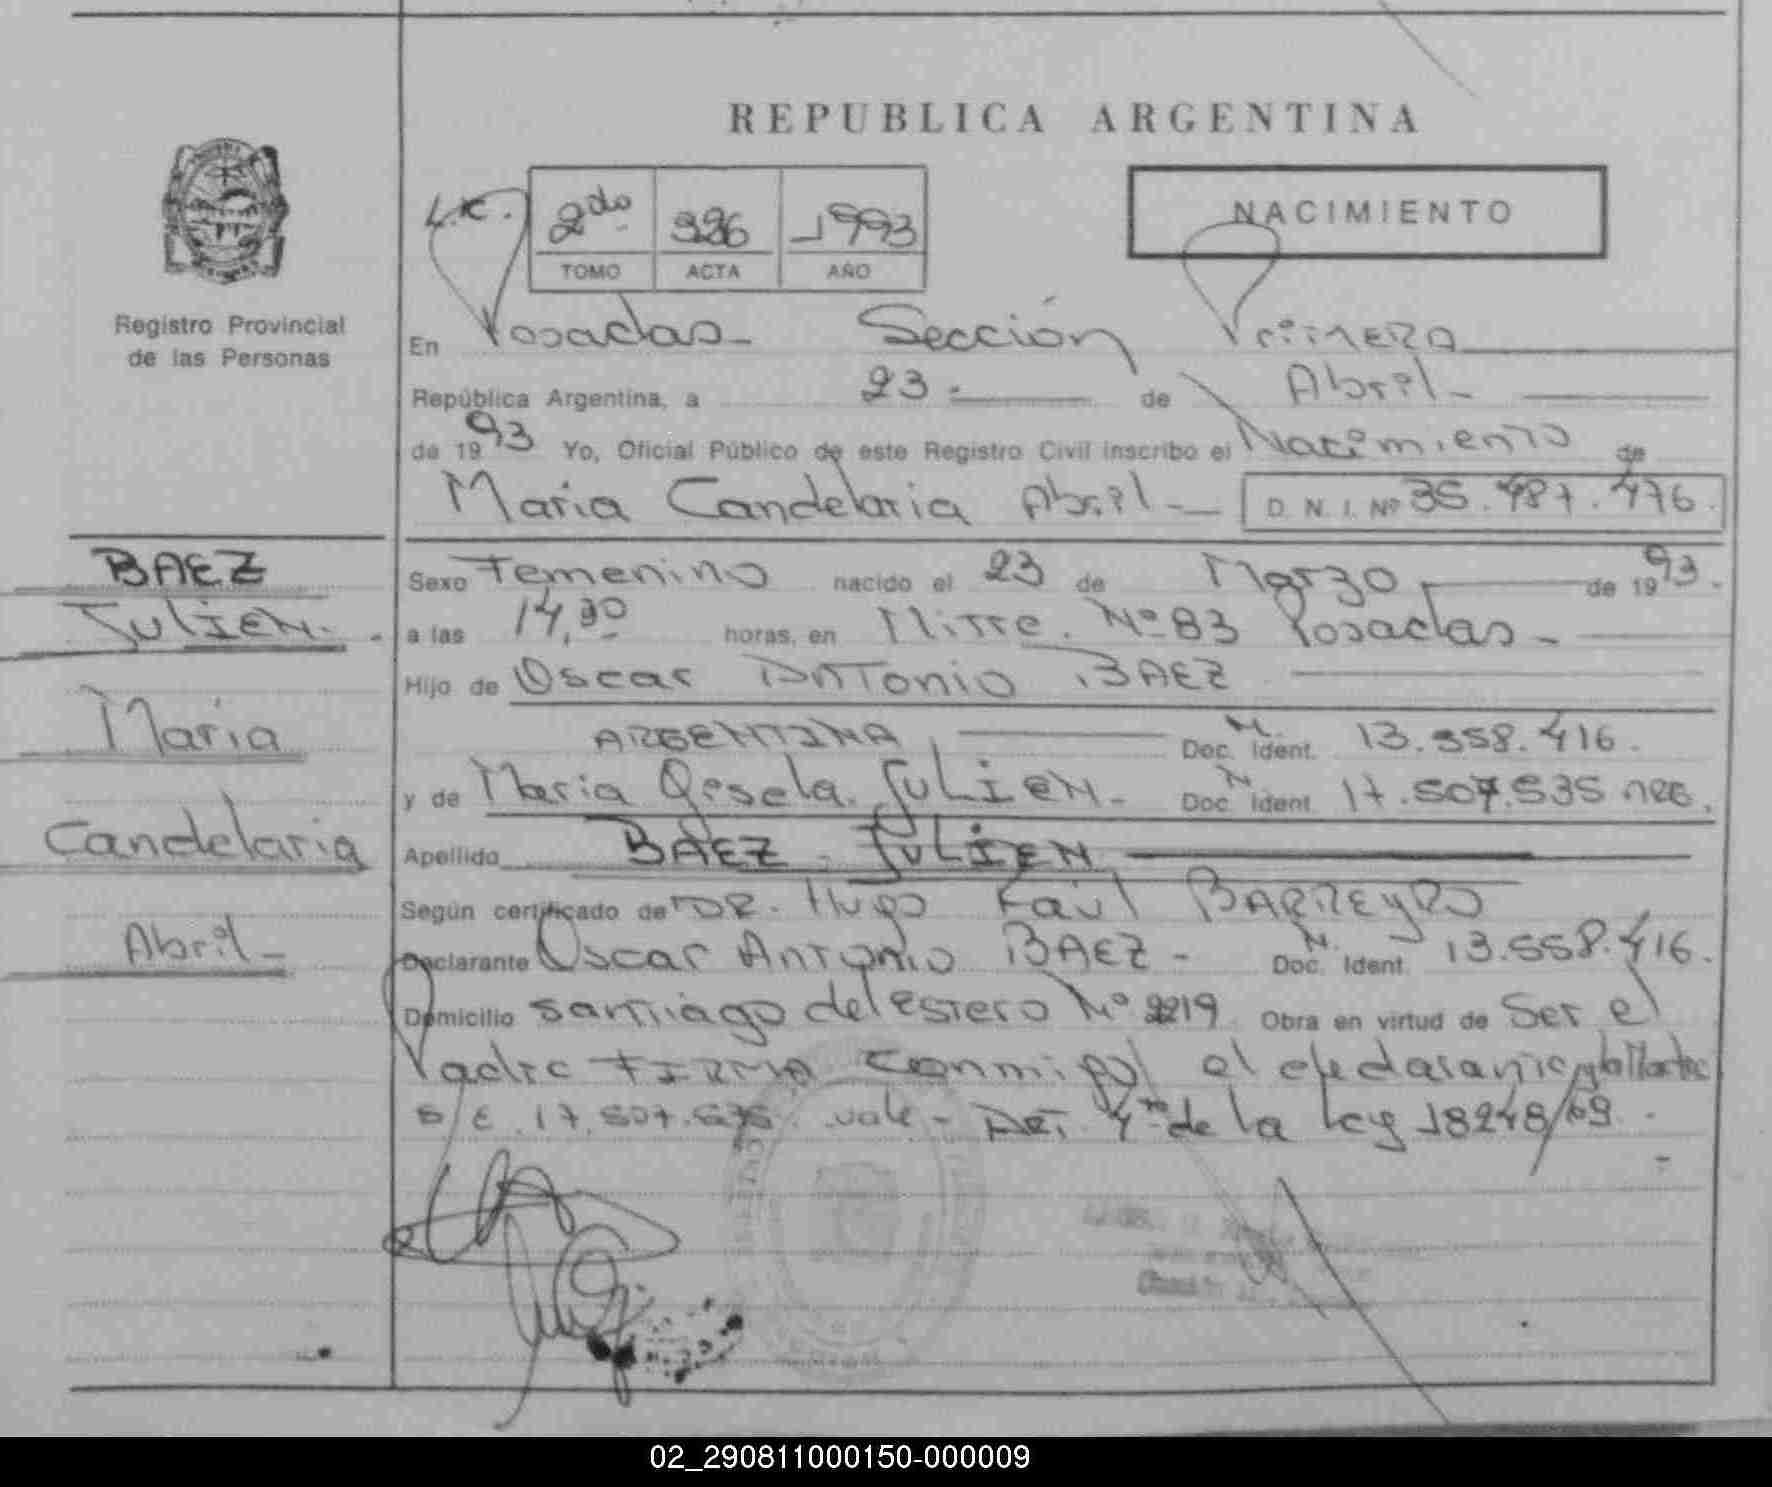 REPUBLICA ARGENTINA
NACIMIENTO
2do 1993
TOMO ACTA AÑO
Registro Provincial
de las Personas
En Posadas - Sección Primera
República Argentina, a 23 - de Abril -
de 1993 Yo, Oficial Público de este Registro Civil inscribo el Nacimiento de
Maria Candelaria Abril - D. N. I. Nº 35.487.476.
BAEZ
JULIEN.
Maria
Candelaria
Abril -
Sexo Femenino nacido el 23 de Marzo de 1993.
a las 14,30 horas, en Mitre. Nº 83 Posadas -
Hijo de Oscar Antonio BAEZ
ARGENTINA Doc. Ident. 13.558.416.
y de Maria JULIEN. - Doc. Ident. 17.507.535
Apellido BAEZ - JULIEN
Según certificado de DR. Hugo Raúl BARREYRO
Declarante Oscar Antonio BAEZ - Doc. Ident. 13.558.416.
Domicilio Santiago del Estero Nº 2219 Obra en virtud de Ser el
Padre FIRMA Conmigo el declarante y la Madre
vale - Art. 4to de la Ley 18248/69.
02_290811000150-000009